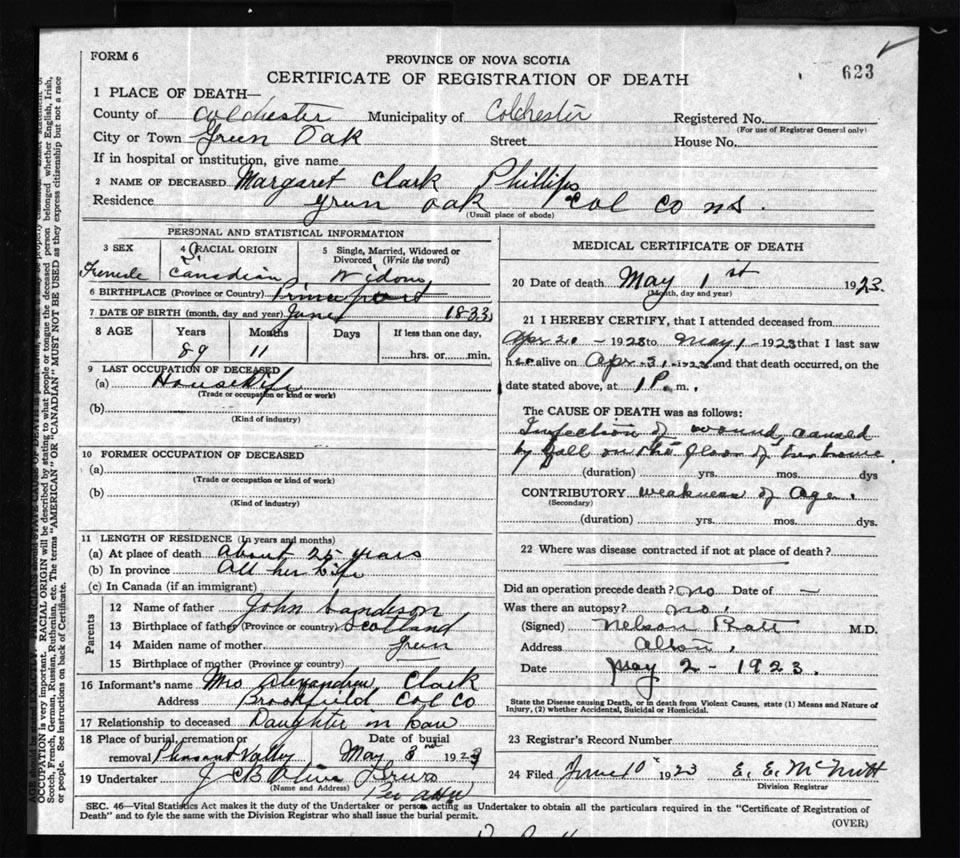 FORM 6
PROVINCE OF NOVA SCOTIA
623
CERTIFICATE OF REGISTRATION OF DEATH
1 PLACE OF DEATH—
County of Colchester Municipality of Colchester Registered No.
(For use of Registrar General only)
City or Town Green Oak Street House No.
If in hospital or institution, give name
2 NAME OF DECEASED Margaret Clark Phillips
Residence Green Oak Col Co NS.
(Usual place of abode)
PERSONAL AND STATISTICAL INFORMATION
3 SEX 4 RACIAL ORIGIN 5 Single, Married, Widowed or Divorced (Write the word)
Female Canadian Widow
6 BIRTHPLACE (Province or Country) Princeport
7 DATE OF BIRTH (month, day and year) June 1833
8 AGE Years Months Days If less than one day,
89 11 hrs. or min.
9 LAST OCCUPATION OF DECEASED
(a) Housewife
(Trade or occupation or kind or work)
(b)
(Kind of industry)
10 FORMER OCCUPATION OF DECEASED
(a)
(Trade or occupation or kind of work)
(b)
(Kind of industry)
11 LENGTH OF RESIDENCE (In years and months)
(a) At place of death About 25 years
(b) In province All her Life
(c) In Canada (if an immigrant)
Parents
12 Name of father John
13 Birthplace of father (Province or country) Scotland
14 Maiden name of mother
15 Birthplace of mother (Province or country) —
16 Informant's name Mrs Clark
Address Brookfield Col Co
17 Relationship to deceased Daughter in Law
18 Place of burial, cremation or removal Pleasant Vally Date of burial May 3rd 1923
19 Undertaker J C B
(Name and Address)
MEDICAL CERTIFICATE OF DEATH
20 Date of death May 1st 1923.
(Month, day and year)
21 I HEREBY CERTIFY, that I attended deceased from
1923 to May 1 - 1923 that I last saw
her alive on Apr - and that death occurred, on the
date stated above, at 1 P. m.
The CAUSE OF DEATH was as follows:
Infection of wound caused
by fall on the floor of her home.
(duration) yrs. mos. dys
CONTRIBUTORY weakness of Age.
(Secondary)
(duration) yrs. mos. dys.
22 Where was disease contracted if not at place of death?
Did an operation precede death? no Date of —
Was there an autopsy? no.
(Signed) Nelson Pratt M.D.
Address
Date May 2 - 1923.
State the Disease causing Death, or in death from Violent Causes, state (1) Means and Nature of
Injury, (2) whether Accidental, Suicidal or Homicidal.
23 Registrar's Record Number
24 Filed June 10" 1923 E. E. McNutt
Division Registrar
SEC. 46—Vital Statistics Act makes it the duty of the Undertaker or person acting as Undertaker to obtain all the particulars required in the "Certificate of Registration of
Death" and to fyle the same with the Division Registrar who shall issue the burial permit.
(OVER)
OCCUPATION is very important. RACIAL ORIGIN will be described by stating to what people or tongue the deceased person belonged whether English, Irish,
Scotch, French, German, Russian, Ruthenian, etc. The terms "AMERICAN" OR "CANADIAN" MUST NOT BE USED as they express citizenship but not a race
or people. See instructions on back of Certificate.